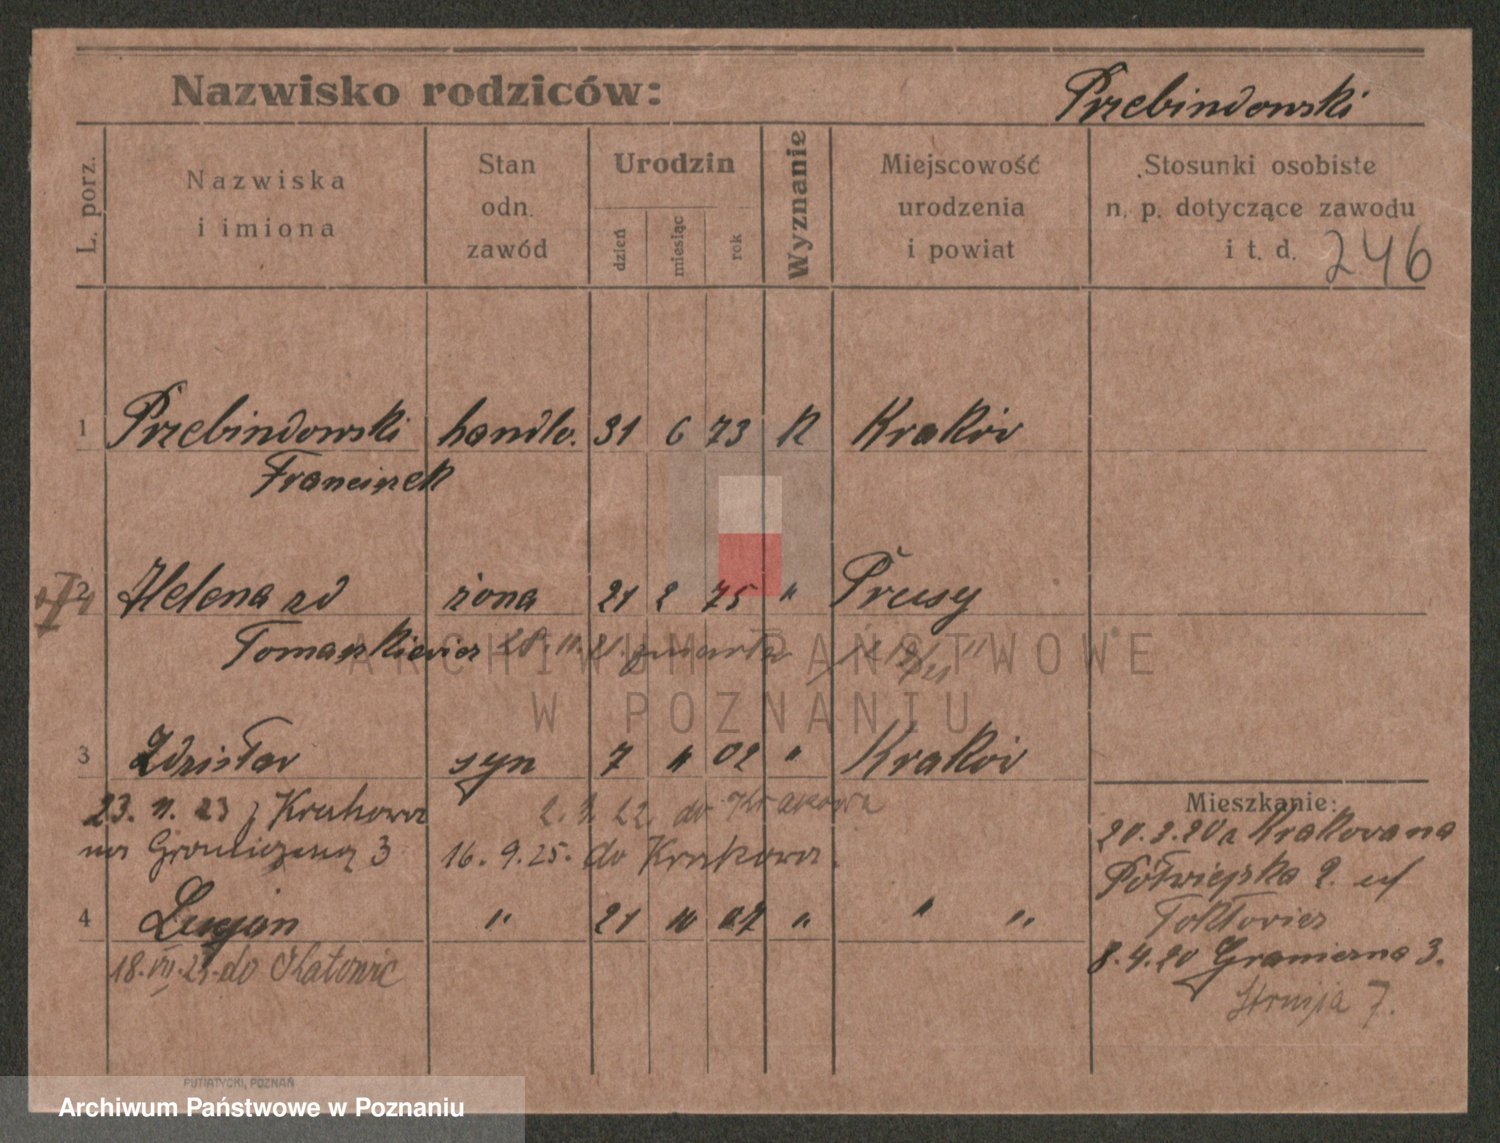 Nazwisko rodziców: Przebindowski
L. porz.
Nazwiska i imiona
Stan odn. zawód
Urodzin
dzień miesiąc rok
Wyznanie
Miejscowość urodzenia i powiat
Stosunki osobiste n. p. dotyczące zawodu i t. d. 246
1 Przebindowski handlo. 31 6 73 K Kraków
Franciszek
2 Helena zd żona 21 2 75 " Prusy
Tomaszkiewicz 28. 11. 21.
3 Zdzisław syn 7 " 02 " Kraków
23. 11. 23 z Krakowa 2. 22. do Krakowa
na Graniczną 3 16. 9. 25. do Krakowa.
4 Lucjan " 21 10 07 " " "
18. VII. do Katowic
Mieszkanie:
20. 3. 20 z Krakowa na
Półwiejska 2.
8. 4. 20 Graniczna 3.
Strusia 7.
PUTIATYCKI, POZNAŃ
ARCHIWUM PAŃSTWOWE
W POZNANIU
Archiwum Państwowe w Poznaniu